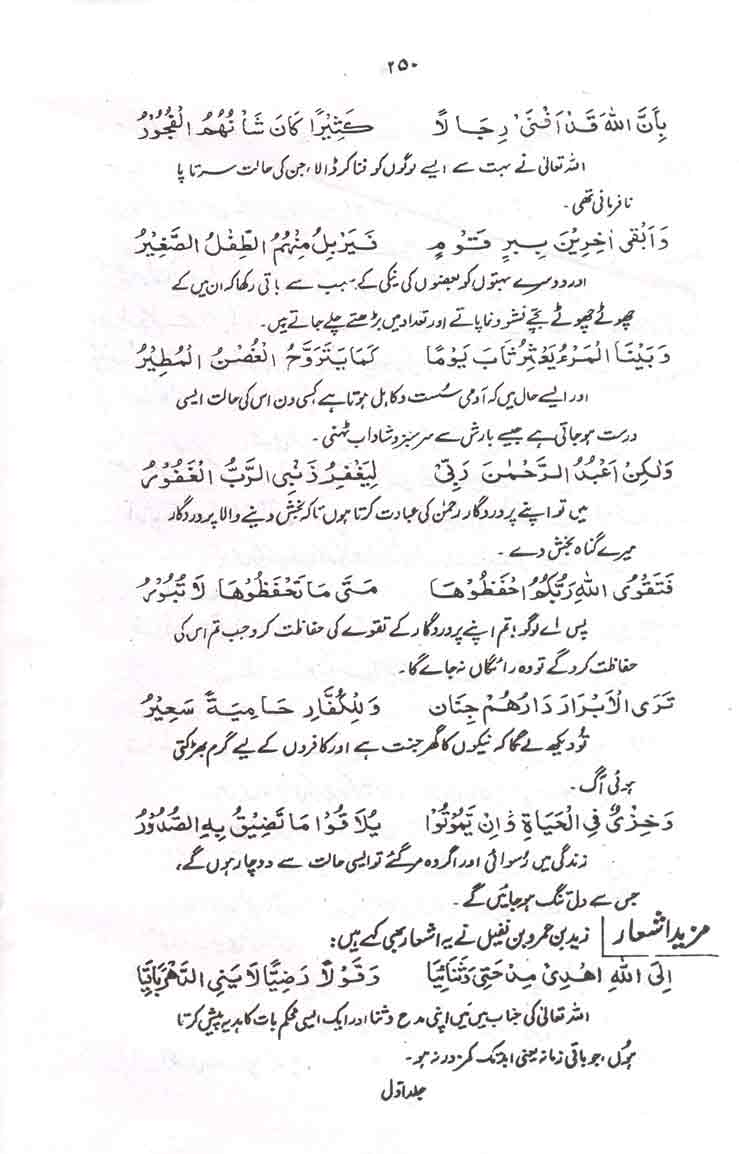 ۲۵۰
بِأَنَّ اللهَ قَدْ اَفْنٰی رِجَالًا کَثِیْرًا کَانَ شَأْنُهُمُ الْفُجُوْرُ
اللہ تعالیٰ نے بہت سے ایسے لوگوں کو فنا کر ڈالا، جن کی حالت سرتاپا
نافرمانی تھی۔
وَاَبْقٰی اٰخِرِیْنَ بِبِرِّ قَوْمٍ فَیَرْبِلُ مِنْهُمُ الطِّفْلُ الصَّغِیْرُ
اور دوسرے بہتوں کو بعضوں کی نیکی کے سبب سے باقی رکھا کہ ان میں کے
چھوٹے چھوٹے بچے نشوونما پاتے اور تعداد میں بڑھتے چلے جاتے ہیں۔
وَبَیْنَا الْمَرْءُ یَعْثِرُ ثَابَ یَوْمًا کَمَا یَتَرَوَّحُ الْغُصْنُ الْمُطِیْرُ
اور ایسے حال میں کہ آدمی سُست و کاہل ہوتا ہے کسی دن اس کی حالت ایسی
درست ہو جاتی ہے جیسے بارش سے سرسبز و شاداب ٹہنی۔
وَلٰکِنْ اَعْبُدُ الرَّحْمٰنَ رَبِّیْ لِیَغْفِرَ ذَنْبِیَ الرَّبُّ الْغَفُوْرُ
میں تو اپنے پروردگار رحمٰن کی عبادت کرتا ہوں تاکہ بخش دینے والا پروردگار
میرے گناہ بخش دے۔
فَتَقْوَی اللهِ رَبِّکُمُ احْفَظُوْهَا مَتٰی مَا تَحْفَظُوْهَا لَا تَبُوْرُ
پس اے لوگو! تم اپنے پروردگار کے تقوے کی حفاظت کرو جب تم اس کی
حفاظت کرو گے تو وہ رائگاں نہ جائے گا۔
تَرَی الْاَبْرَارَ دَارُهُمْ جِنَان وَلِلْکُفَّارِ حَامِیَةً سَعِیْرُ
تُو دیکھ لے گا کہ نیکوں کا گھر جنت ہے اور کافروں کے لیے گرم بھڑکتی
ہوئی آگ۔
وَخِزْیٌ فِی الْحَیَاةِ وَاِنْ یَمُوْتُوْا یُلَاقُوْا مَا تَضِیْقُ بِهِ الصُّدُوْرُ
زندگی میں رُسوائی اور اگر وہ مر گئے تو ایسی حالت سے دوچار ہوں گے،
جس سے دل تنگ ہو جائیں گے۔
مزید اشعار زید بن عمرو بن نفیل نے یہ اشعار بھی کہے ہیں:
اِلَی اللهِ اُهْدِیْ مِدْحَتِیْ وَثَنَائِیَا وَقَوْلًا رَضِیًّا لَا یَنِی الدَّهْرَ بَاقِیَا
اللہ تعالیٰ کی جناب میں میں اپنی مدح و ثنا اور ایک ایسی محکم بات کا ہدیہ پیش کرتا
ہوں، جو باقی زمانہ یعنی ابد تک کمزور نہ ہو۔
جلد اوّل